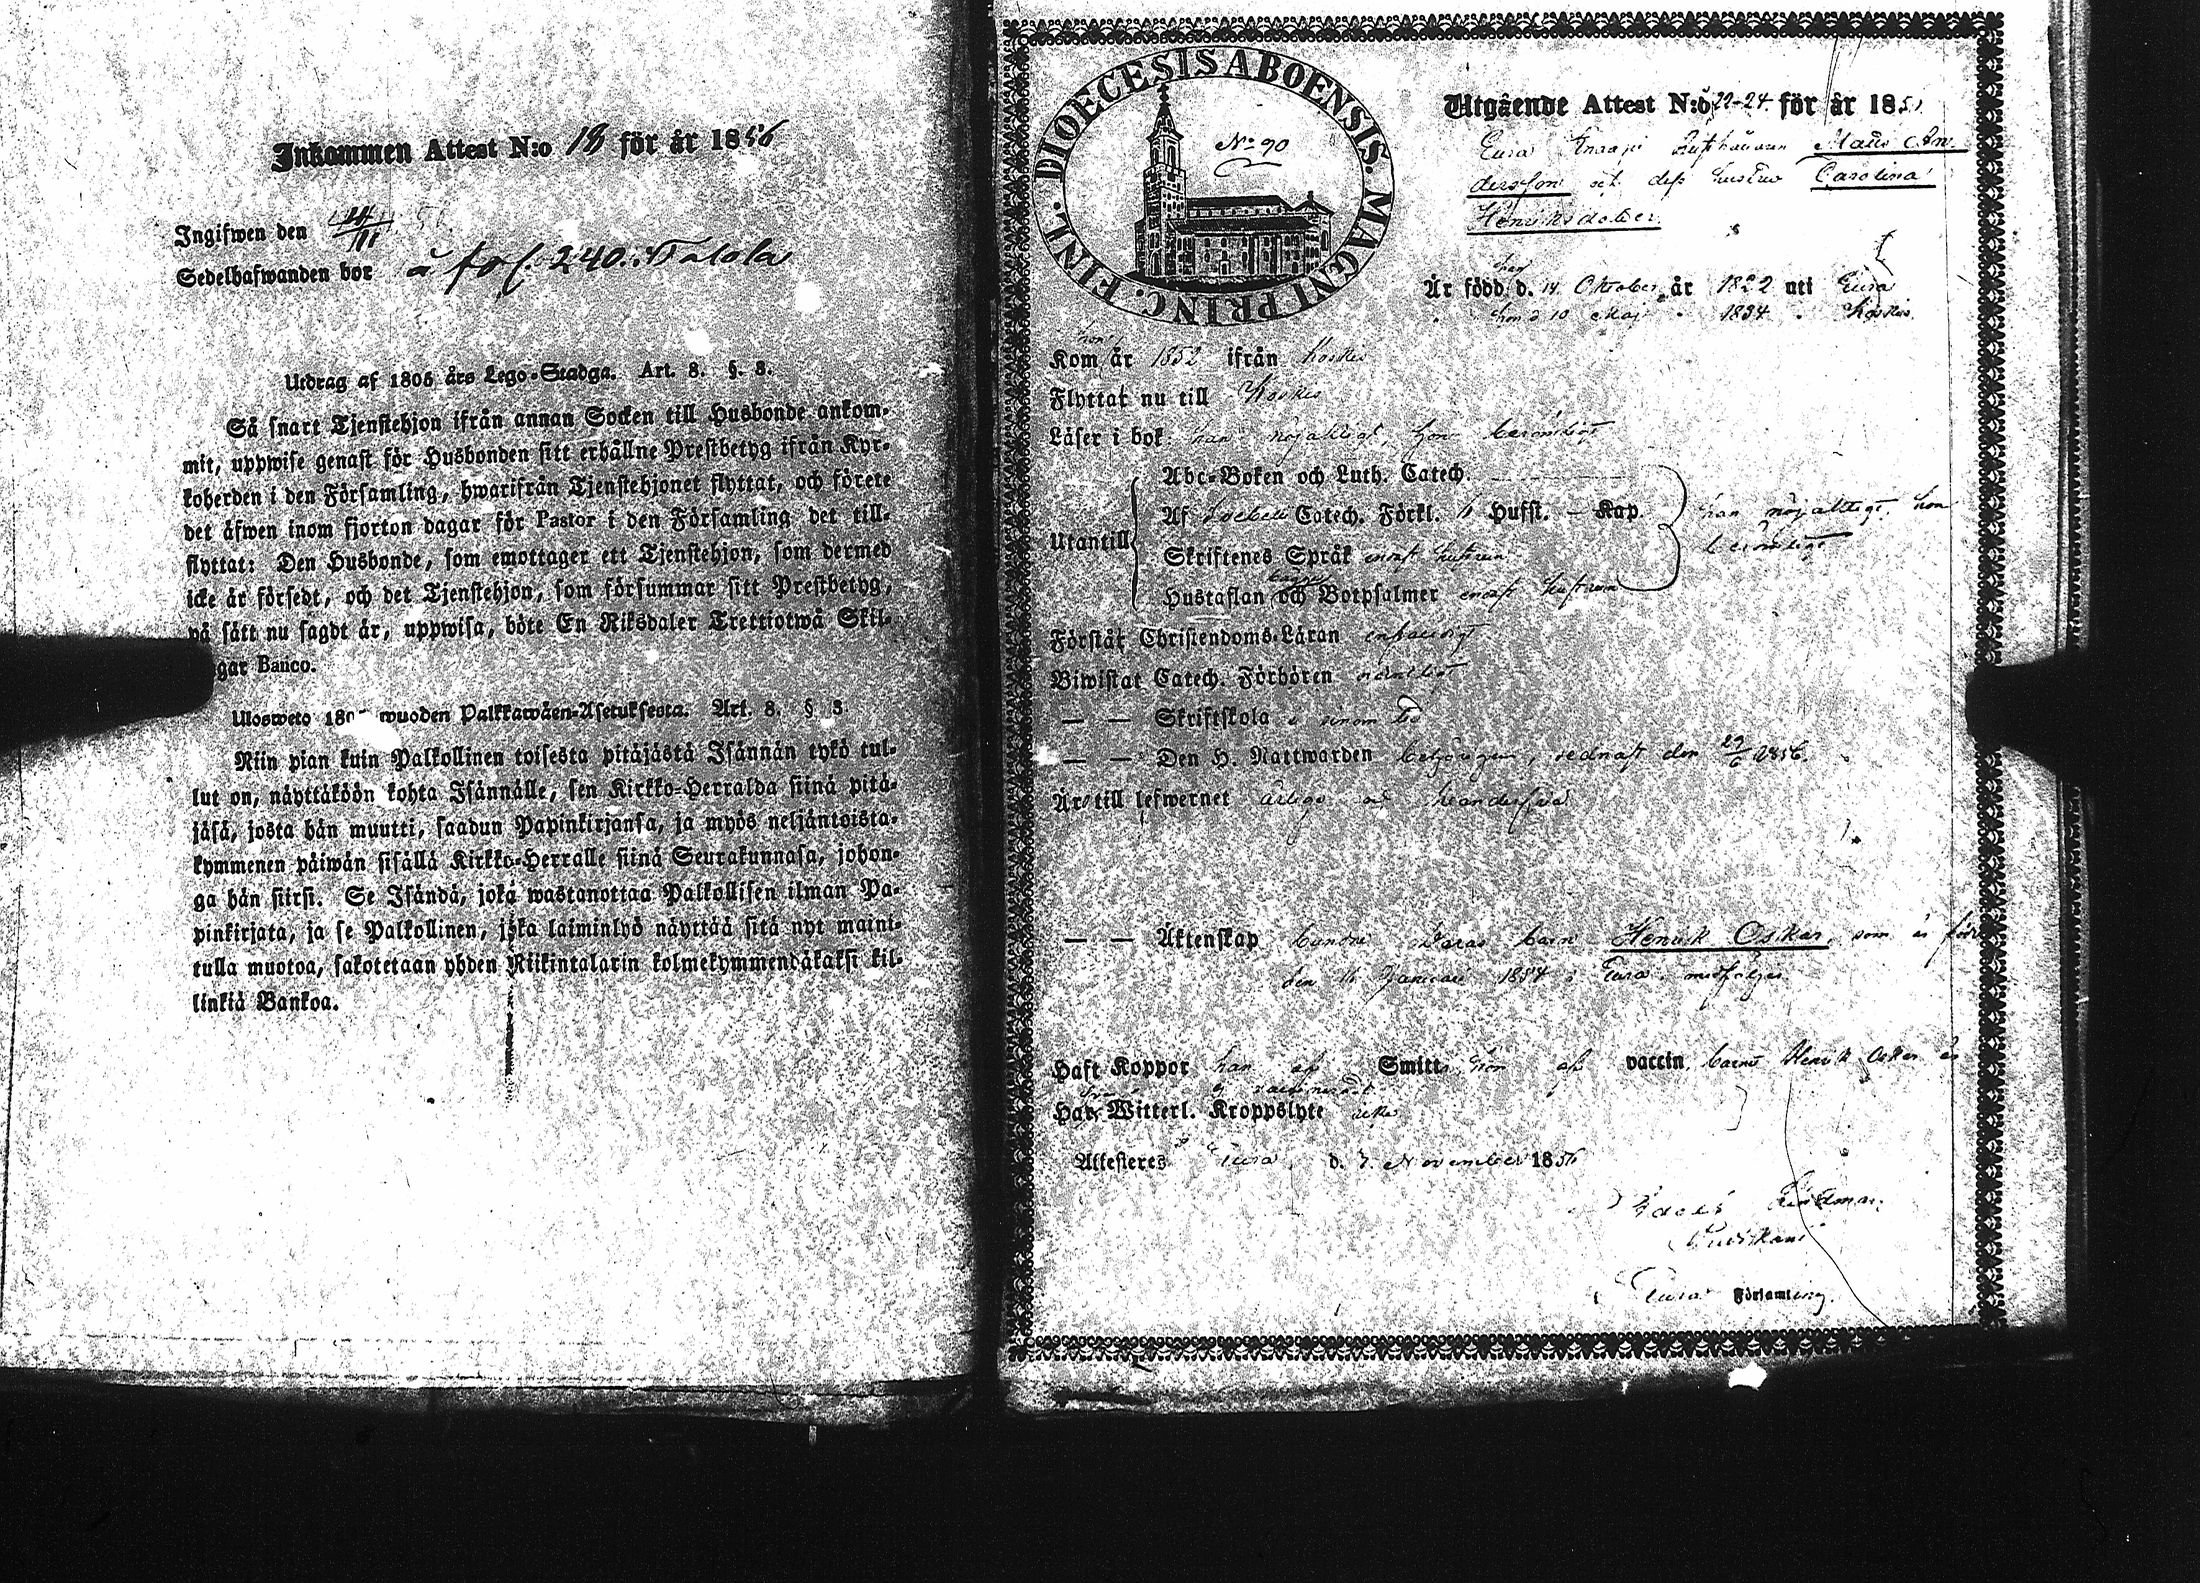 Inkommen Attest N:o 18 för år 1856
Ingifwen den
Sedelhafwanden bor å fol. 240. Talola
Utdrag af 1805 års Lego-Stadga. Art. 8. §. 8.
Så snart Tjenstehjon ifrån annan Socken till Husbonde ankom-
mit, uppwise genast för Husbonden sitt erhållne Prestbetyg ifrån Kyr-
koherden i den Församling, hwarifrån Tjenstehjonet flyttat, och förete
det äfwen inom fjorton dagar för Pastor i den Församling det till-
flyttat: Den Husbonde, som emottager ett Tjenstehjon, som dermed
icke är försedt, och det Tjenstehjon, som försummar sitt Prestbetyg,
på sätt nu sagdt är, uppwisa, böte En Riksdaler Trettiotwå Skil-
gar Banco.
Ulosweto 180 wuoden Palkkawäen-Asetuksesta. Art. 8. §. 8.
Niin pian kuin Palkollinen toisesta pitäjästä Isännän tykö tul-
lut on, näyttäköön kohta Isännälle, sen Kirkko-Herralda siinä pitä-
jäsä, josta hän muutti, saadun Papinkirjansa, ja myös neljäntoista-
kymmenen päiwän sisällä Kirkko-Herralle siinä Seurakunnasa, johon-
ga hän siirsi. Se Isändä, joka wastanottaa Palkollisen ilman Pa-
pinkirjata, ja se Palkollinen, joka laiminlyö näyttää sitä nyt maini-
tulla muotoa, sakotetaan yhden Riikintalarin kolmekymmendäkaksi kil-
linkiä Bankoa.
DIOECESIS ABOENSIS. MAGNI PRINC. FINL.
No 90
Utgående Attest N:o 22-24 för år 185
Eura Knaapi Matts An-
dersson och dess hustru Carolina
Henriksdotter
han
Är född d. 14 Oktober år 1822 uti Eura
hon d 10 Maj 1834 Koskis
hon
Kom år 1852 ifrån Koskis
Flyttat nu till Koskis
Läser i bok: han nöjaktigt, hon berömligt
Utantill
Abc-Boken och Luth. Catech.
Af Catech. Förkl. Hufst. – Kap. han nöjaktigt hon
berömligt
Skriftenes Språk endast hustrun
Hustaflan och Botpsalmer endast hustrun
Förstår Christendoms-Läran enfaldigt
Biwistat Catech. Förhören ordentligt
— — Skriftskola i sinom tid
— — Den H. Nattwarden, sednast den 29/6 1856.
Är till lefwernet
— — Äktenskap deras barn Henrik Oskar, som är född
den 16 Januari 1854 i Eura medföljer
Haft Koppor han af Smitt, hon af vaccin, barnet Henrik Oskar är
Har Witterl. Kroppslyte icke
Attesteres Eura d. 7. November 1856
Eura Församling.